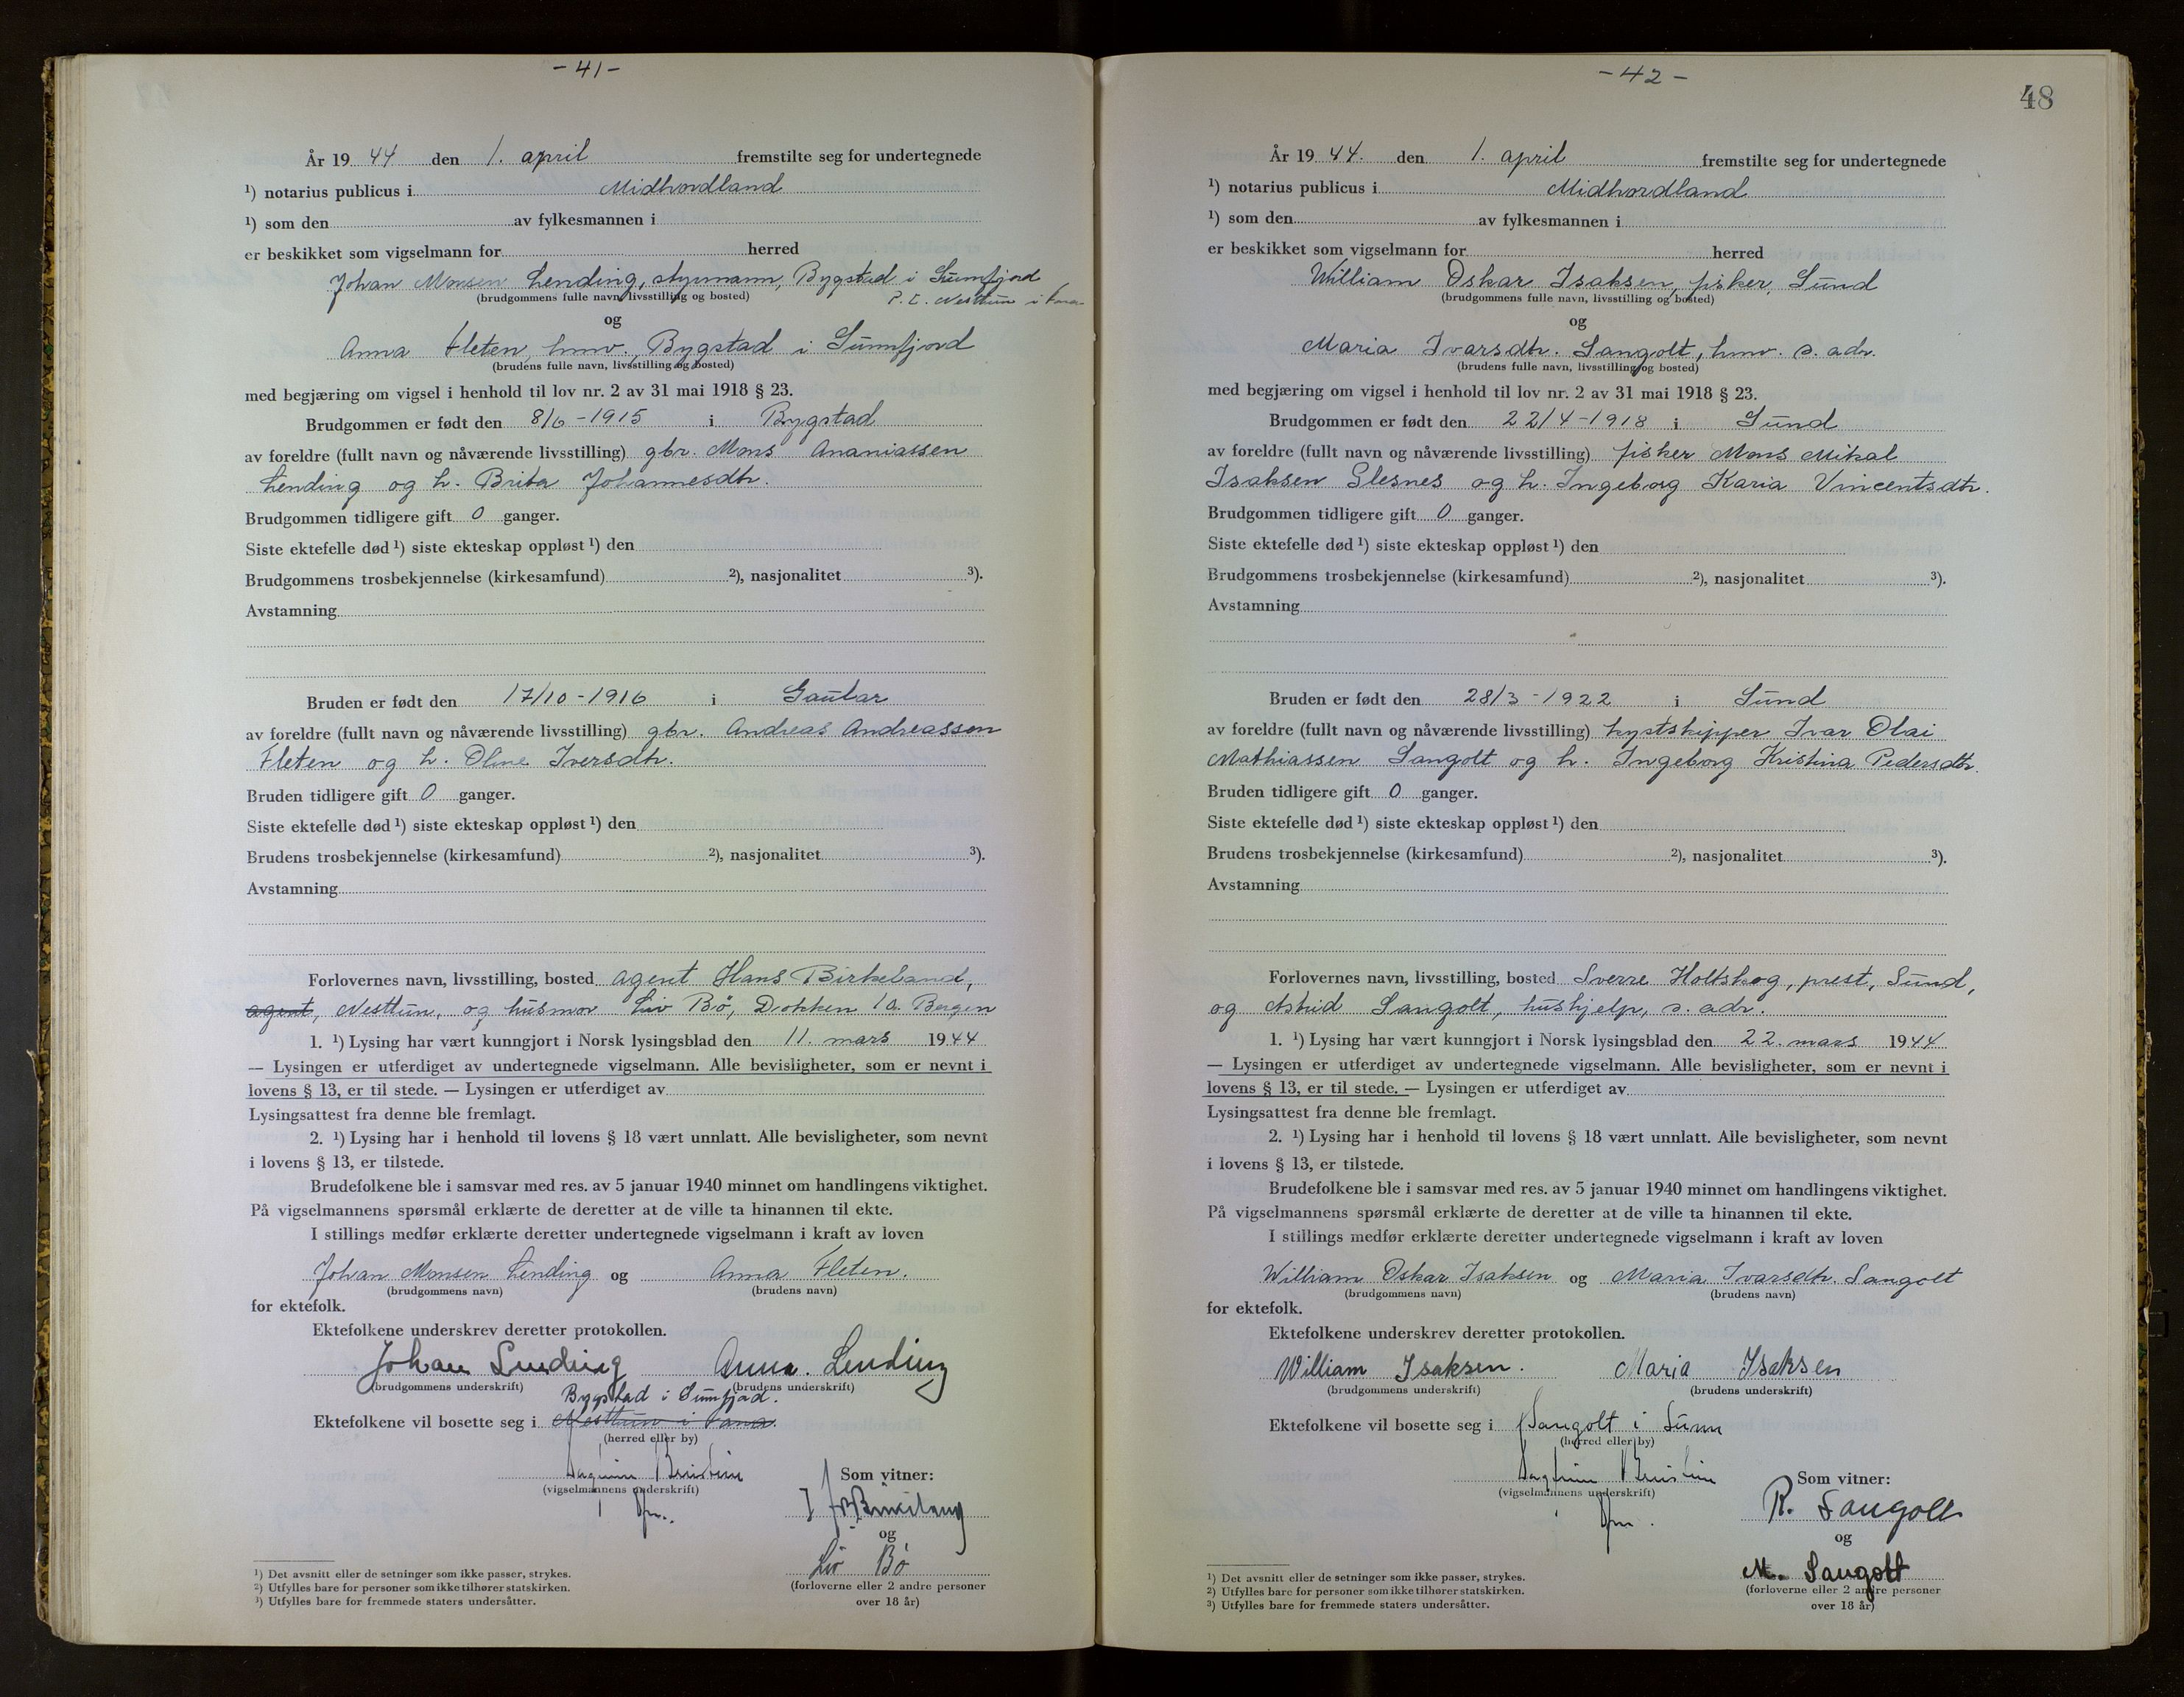 - 41 -
År 19 44 den 1. april fremstilte seg for undertegnede
1) notarius publicus i Midhordland
1) som den av fylkesmannen i
er beskikket som vigselmann for herred
Johan Monsen Lending, styrmann, Bygstad i Sunnfjord
(brudgommens fulle navn, livsstilling og bosted) P. t. Nesttun i Fana
og
Anna Fleten, hmv., Bygstad i Sunnfjord
(brudens fulle navn, livsstilling og bosted)
med begjæring om vigsel i henhold til lov nr. 2 av 31 mai 1918 § 23.
Brudgommen er født den 8/6 - 1915 i Bygstad
av foreldre (fullt navn og nåværende livsstilling) gbr. Mons Ananiassen
Lending og h. Brita Johannesdtr.
Brudgommen tidligere gift 0 ganger.
Siste ektefelle død 1) siste ekteskap oppløst 1) den
Brudgommens trosbekjennelse (kirkesamfund) 2), nasjonalitet 3).
Avstamning
Bruden er født den 17/10 - 1916 i Gaular
av foreldre (fullt navn og nåværende livsstilling) gbr. Andreas Andreassen
Fleten og h. Oline Iversdtr.
Bruden tidligere gift 0 ganger.
Siste ektefelle død 1) siste ekteskap oppløst 1) den
Brudens trosbekjennelse (kirkesamfund) 2), nasjonalitet 3).
Avstamning
Forlovernes navn, livsstilling, bosted agent Hans Birkeland,
agent, Nesttun, og husmor Liv Bö, Dokken 1a. Bergen
1. 1) Lysing har vært kunngjort i Norsk lysingsblad den 11. mars 1944
— Lysingen er utferdiget av undertegnede vigselmann. Alle bevisligheter, som er nevnt i
lovens § 13, er til stede. — Lysingen er utferdiget av
Lysingsattest fra denne ble fremlagt.
2. 1) Lysing har i henhold til lovens § 18 vært unnlatt. Alle bevisligheter, som nevnt
i lovens § 13, er tilstede.
Brudefolkene ble i samsvar med res. av 5 januar 1940 minnet om handlingens viktighet.
På vigselmannens spørsmål erklærte de deretter at de ville ta hinannen til ekte.
I stillings medfør erklærte deretter undertegnede vigselmann i kraft av loven
Johan Monsen Lending og Anna Fleten.
(brudgommens navn) (brudens navn)
for ektefolk.
Ektefolkene underskrev deretter protokollen.
Johan Lending Anna. Lending
(brudgommens underskrift) (brudens underskrift)
Bygstad i Sunnfjord.
Ektefolkene vil bosette seg i Nesttun i Fana.
(herred eller by)
Som vitner:
(vigselmannens underskrift)
og
Liv Bö
(forloverne eller 2 andre personer
over 18 år)
1) Det avsnitt eller de setninger som ikke passer, strykes.
2) Utfylles bare for personer som ikke tilhører statskirken.
3) Utfylles bare for fremmede staters undersåtter.
- 42 -
48
År 19 44. den 1. april fremstilte seg for undertegnede
1) notarius publicus i Midhordland
1) som den av fylkesmannen i
er beskikket som vigselmann for herred
William Oskar Isaksen, fisker, Sund
(brudgommens fulle navn, livsstilling og bosted)
og
Maria Ivarsdtr. Sangolt, hmv. s. adr.
(brudens fulle navn, livsstilling og bosted)
med begjæring om vigsel i henhold til lov nr. 2 av 31 mai 1918 § 23.
Brudgommen er født den 22/4 - 1918 i Sund
av foreldre (fullt navn og nåværende livsstilling) fisker Mons Mikal
Isaksen Glesnes og h. Ingeborg Karia Vincentsdtr.
Brudgommen tidligere gift 0 ganger.
Siste ektefelle død 1) siste ekteskap oppløst 1) den
Brudgommens trosbekjennelse (kirkesamfund) 2), nasjonalitet 3).
Avstamning
Bruden er født den 28/3 - 1922 i Sund
av foreldre (fullt navn og nåværende livsstilling) kystskipper Ivar Olai
Mathiassen Sangolt og h. Ingeborg Kristina Pedersdtr.
Bruden tidligere gift 0 ganger.
Siste ektefelle død 1) siste ekteskap oppløst 1) den
Brudens trosbekjennelse (kirkesamfund) 2), nasjonalitet 3).
Avstamning
Forlovernes navn, livsstilling, bosted Sverre Holtskog, prest, Sund,
og Astrid Sangolt, hushjelp, s. adr.
1. 1) Lysing har vært kunngjort i Norsk lysingsblad den 22. mars 1944
— Lysingen er utferdiget av undertegnede vigselmann. Alle bevisligheter, som er nevnt i
lovens § 13, er til stede. — Lysingen er utferdiget av
Lysingsattest fra denne ble fremlagt.
2. 1) Lysing har i henhold til lovens § 18 vært unnlatt. Alle bevisligheter, som nevnt
i lovens § 13, er tilstede.
Brudefolkene ble i samsvar med res. av 5 januar 1940 minnet om handlingens viktighet.
På vigselmannens spørsmål erklærte de deretter at de ville ta hinannen til ekte.
I stillings medfør erklærte deretter undertegnede vigselmann i kraft av loven
William Oskar Isaksen og Maria Ivarsdtr. Sangolt
(brudgommens navn) (brudens navn)
for ektefolk.
Ektefolkene underskrev deretter protokollen.
William Isaksen. Maria Isaksen
(brudgommens underskrift) (brudens underskrift)
Ektefolkene vil bosette seg i Sangolt i Sund
(herred eller by)
Som vitner:
(vigselmannens underskrift)
R. Sangolt
og
M. Sangolt
(forloverne eller 2 andre personer
over 18 år)
1) Det avsnitt eller de setninger som ikke passer, strykes.
2) Utfylles bare for personer som ikke tilhører statskirken.
3) Utfylles bare for fremmede staters undersåtter.